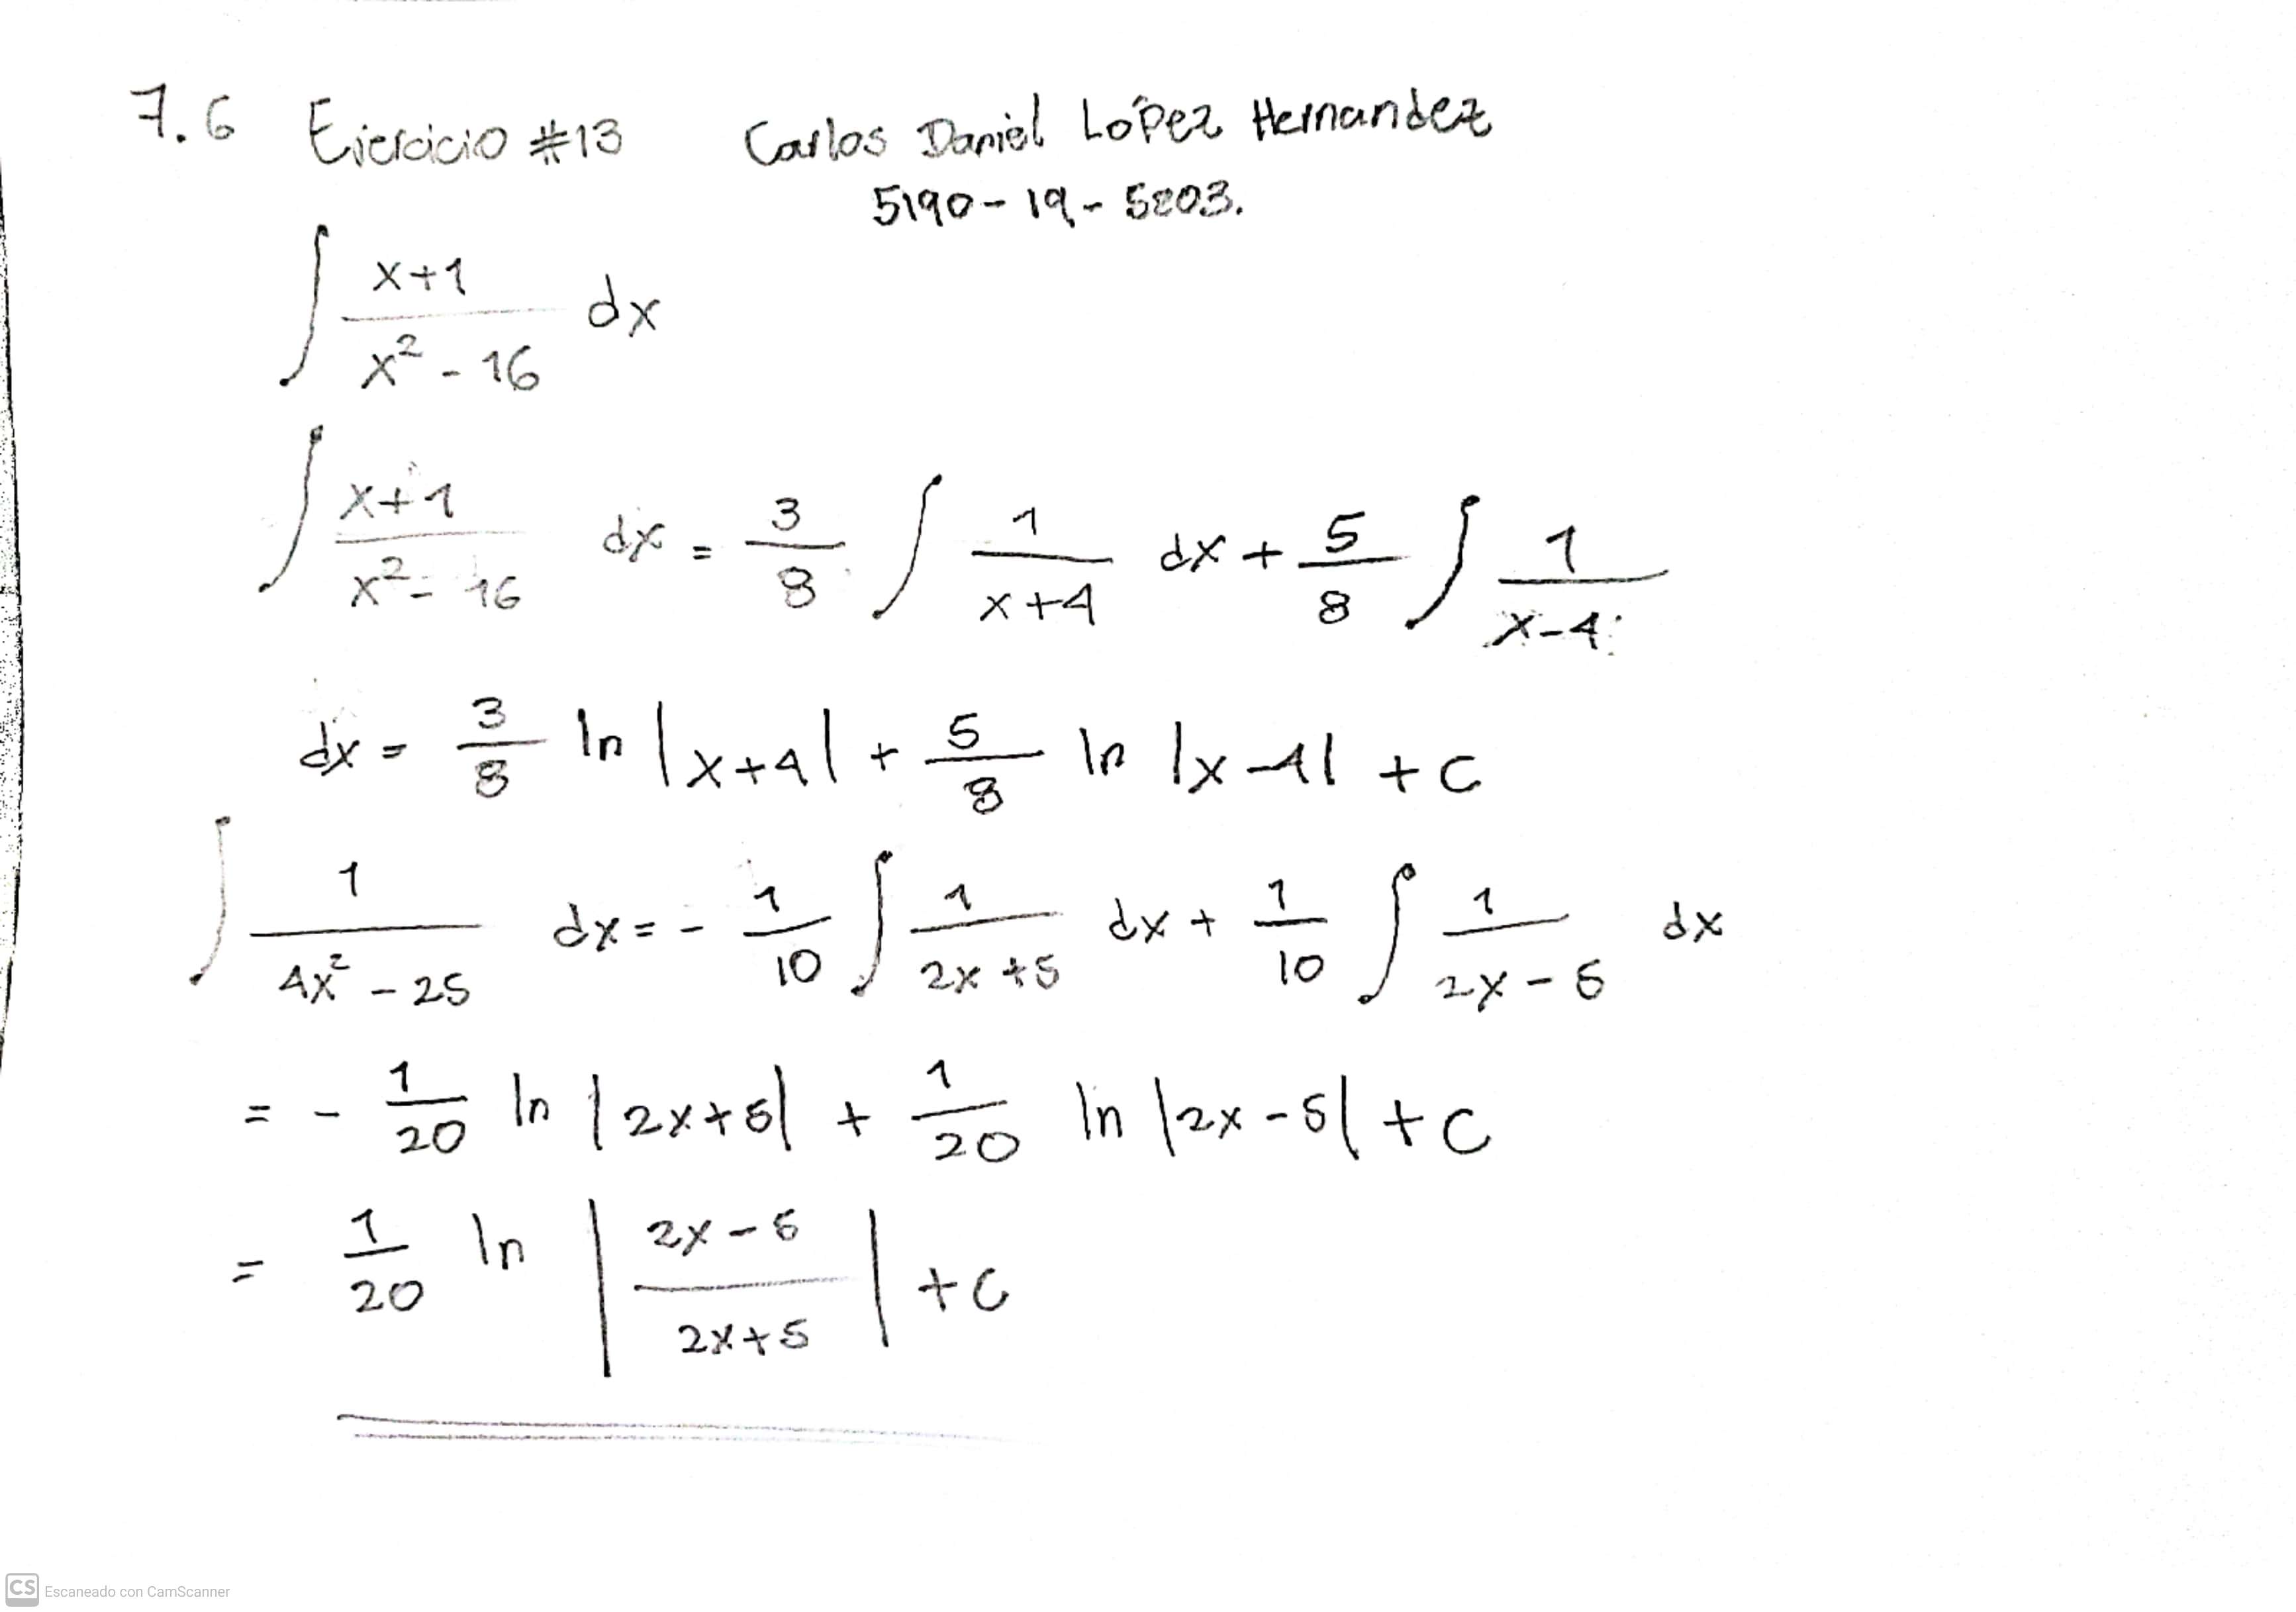 7.6 Ejercicio #13 Carlos Daniel López Hernandez
5190-19-5203.
∫ x+1 / x² - 16 dx
∫ x+1 / x² - 16 dx = 3/8 ∫ 1/x+4 dx + 5/8 ∫ 1/x-4
dx = 3/8 ln |x+4| + 5/8 ln |x-4| + C
∫ 1 / 4x² - 25 dx = - 1/10 ∫ 1/2x+5 dx + 1/10 ∫ 1/2x-5 dx
= - 1/20 ln |2x+5| + 1/20 ln |2x-5| + C
= 1/20 ln | 2x-5 / 2x+5 | + C
CS Escaneado con CamScanner